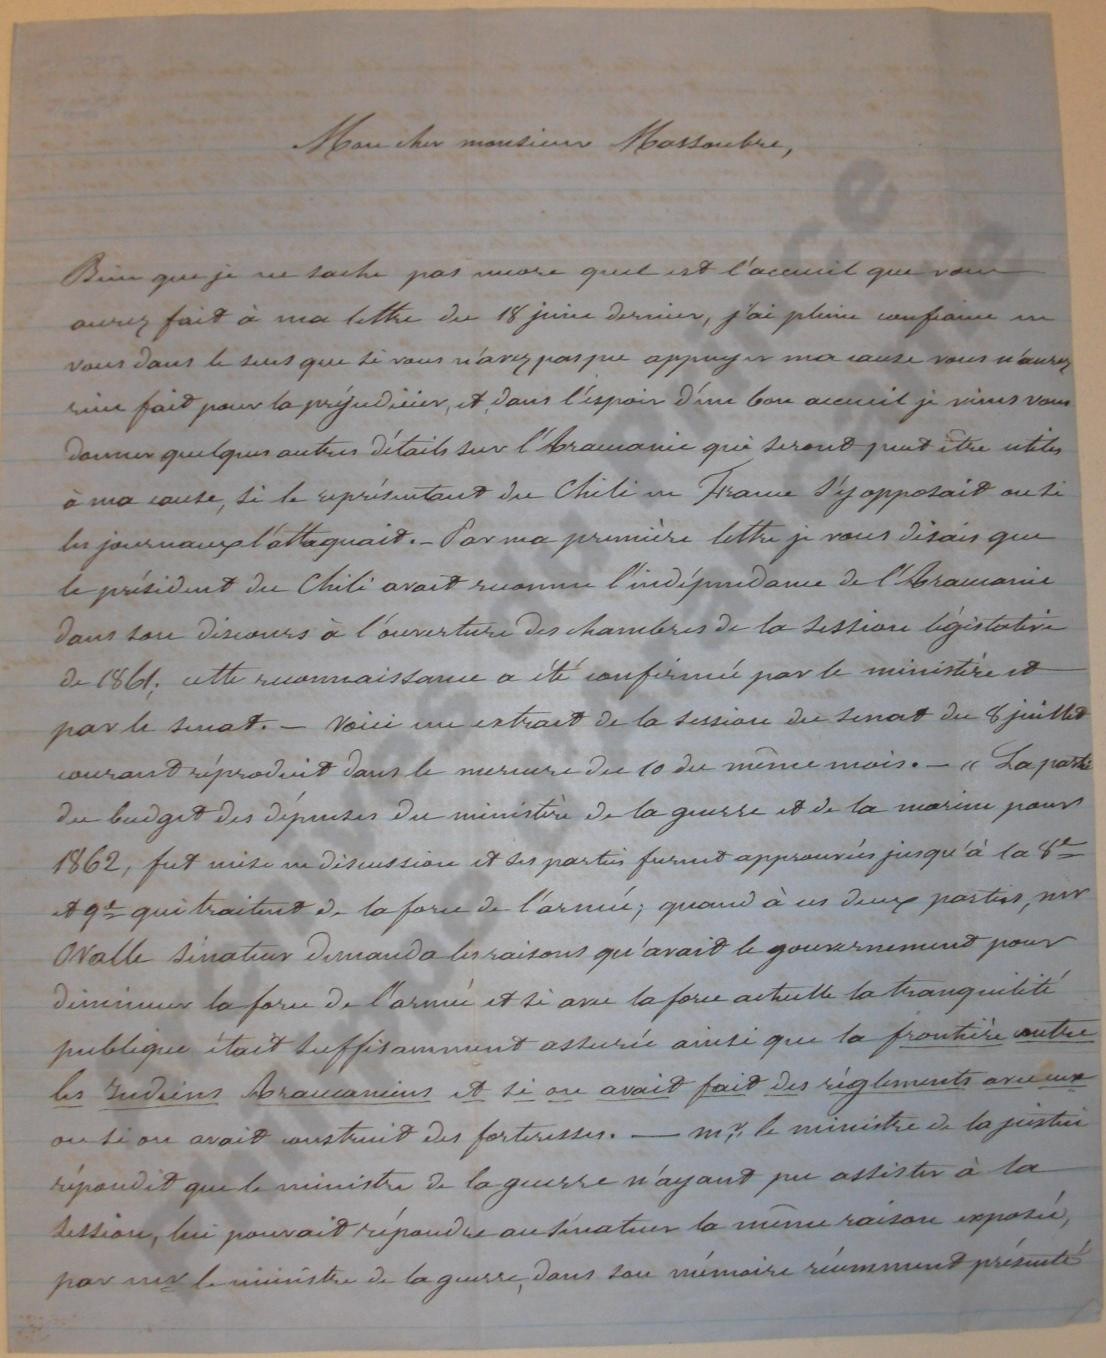 Mon cher monsieur Massoubre,
Bien que je ne sache pas encore quel est l'accueil que vous
aurez fait à ma lettre du 18 juin dernier, j'ai pleine confiance en
vous dans le sens que si vous n'avez pas pu appuyer ma cause vous n'aurez
rien fait pour la préjudicier, et, dans l'éspoir d'un bon accueil je viens vous
donner quelques autres détails sur l'Araucanie qui seront peut être utiles
à ma cause, si le représentant du Chili en France s'y opposait ou si
les journaux l'attaquait. – Par ma première lettre je vous disais que
le président du Chili avait reconnu l'indépendance de l'Araucanie
dans son discours à l'ouverture des chambres de la session législative
de 1861; cette reconnaissance a été confirmée par le ministère et
par le senat. – Voici un extrait de la session du senat du 8 juillet
courant réproduit dans le mercure du 10 du même mois. – « La partie
du budget des dépenses du ministère de la guerre et de la marine pour
1862, fut mise en discussion et ses parties furent approuvées jusqu'à la 8e
et 9e qui traitent de la force de l'armée; quand à ces deux parties, mr
Ovalle sénateur demanda les raisons qu'avait le gouvernement pour
diminuer la force de l'armée et si avec la force actuelle la tranquilité
publique était suffisamment assurée ainsi que la frontière contre
les Indiens Araucaniens et si on avait fait des réglements avec eux
ou si on avait construit des forteresses. — mr. le ministre de la justice
répondit que le ministre de la guerre n'ayant pu assister à la
session, lui pouvait répondre au sénateur la même raison exposée,
par mr le ministre de la guerre, dans son mémoire récemment présenté
Archives du Prince
Philippe d'Araucanie